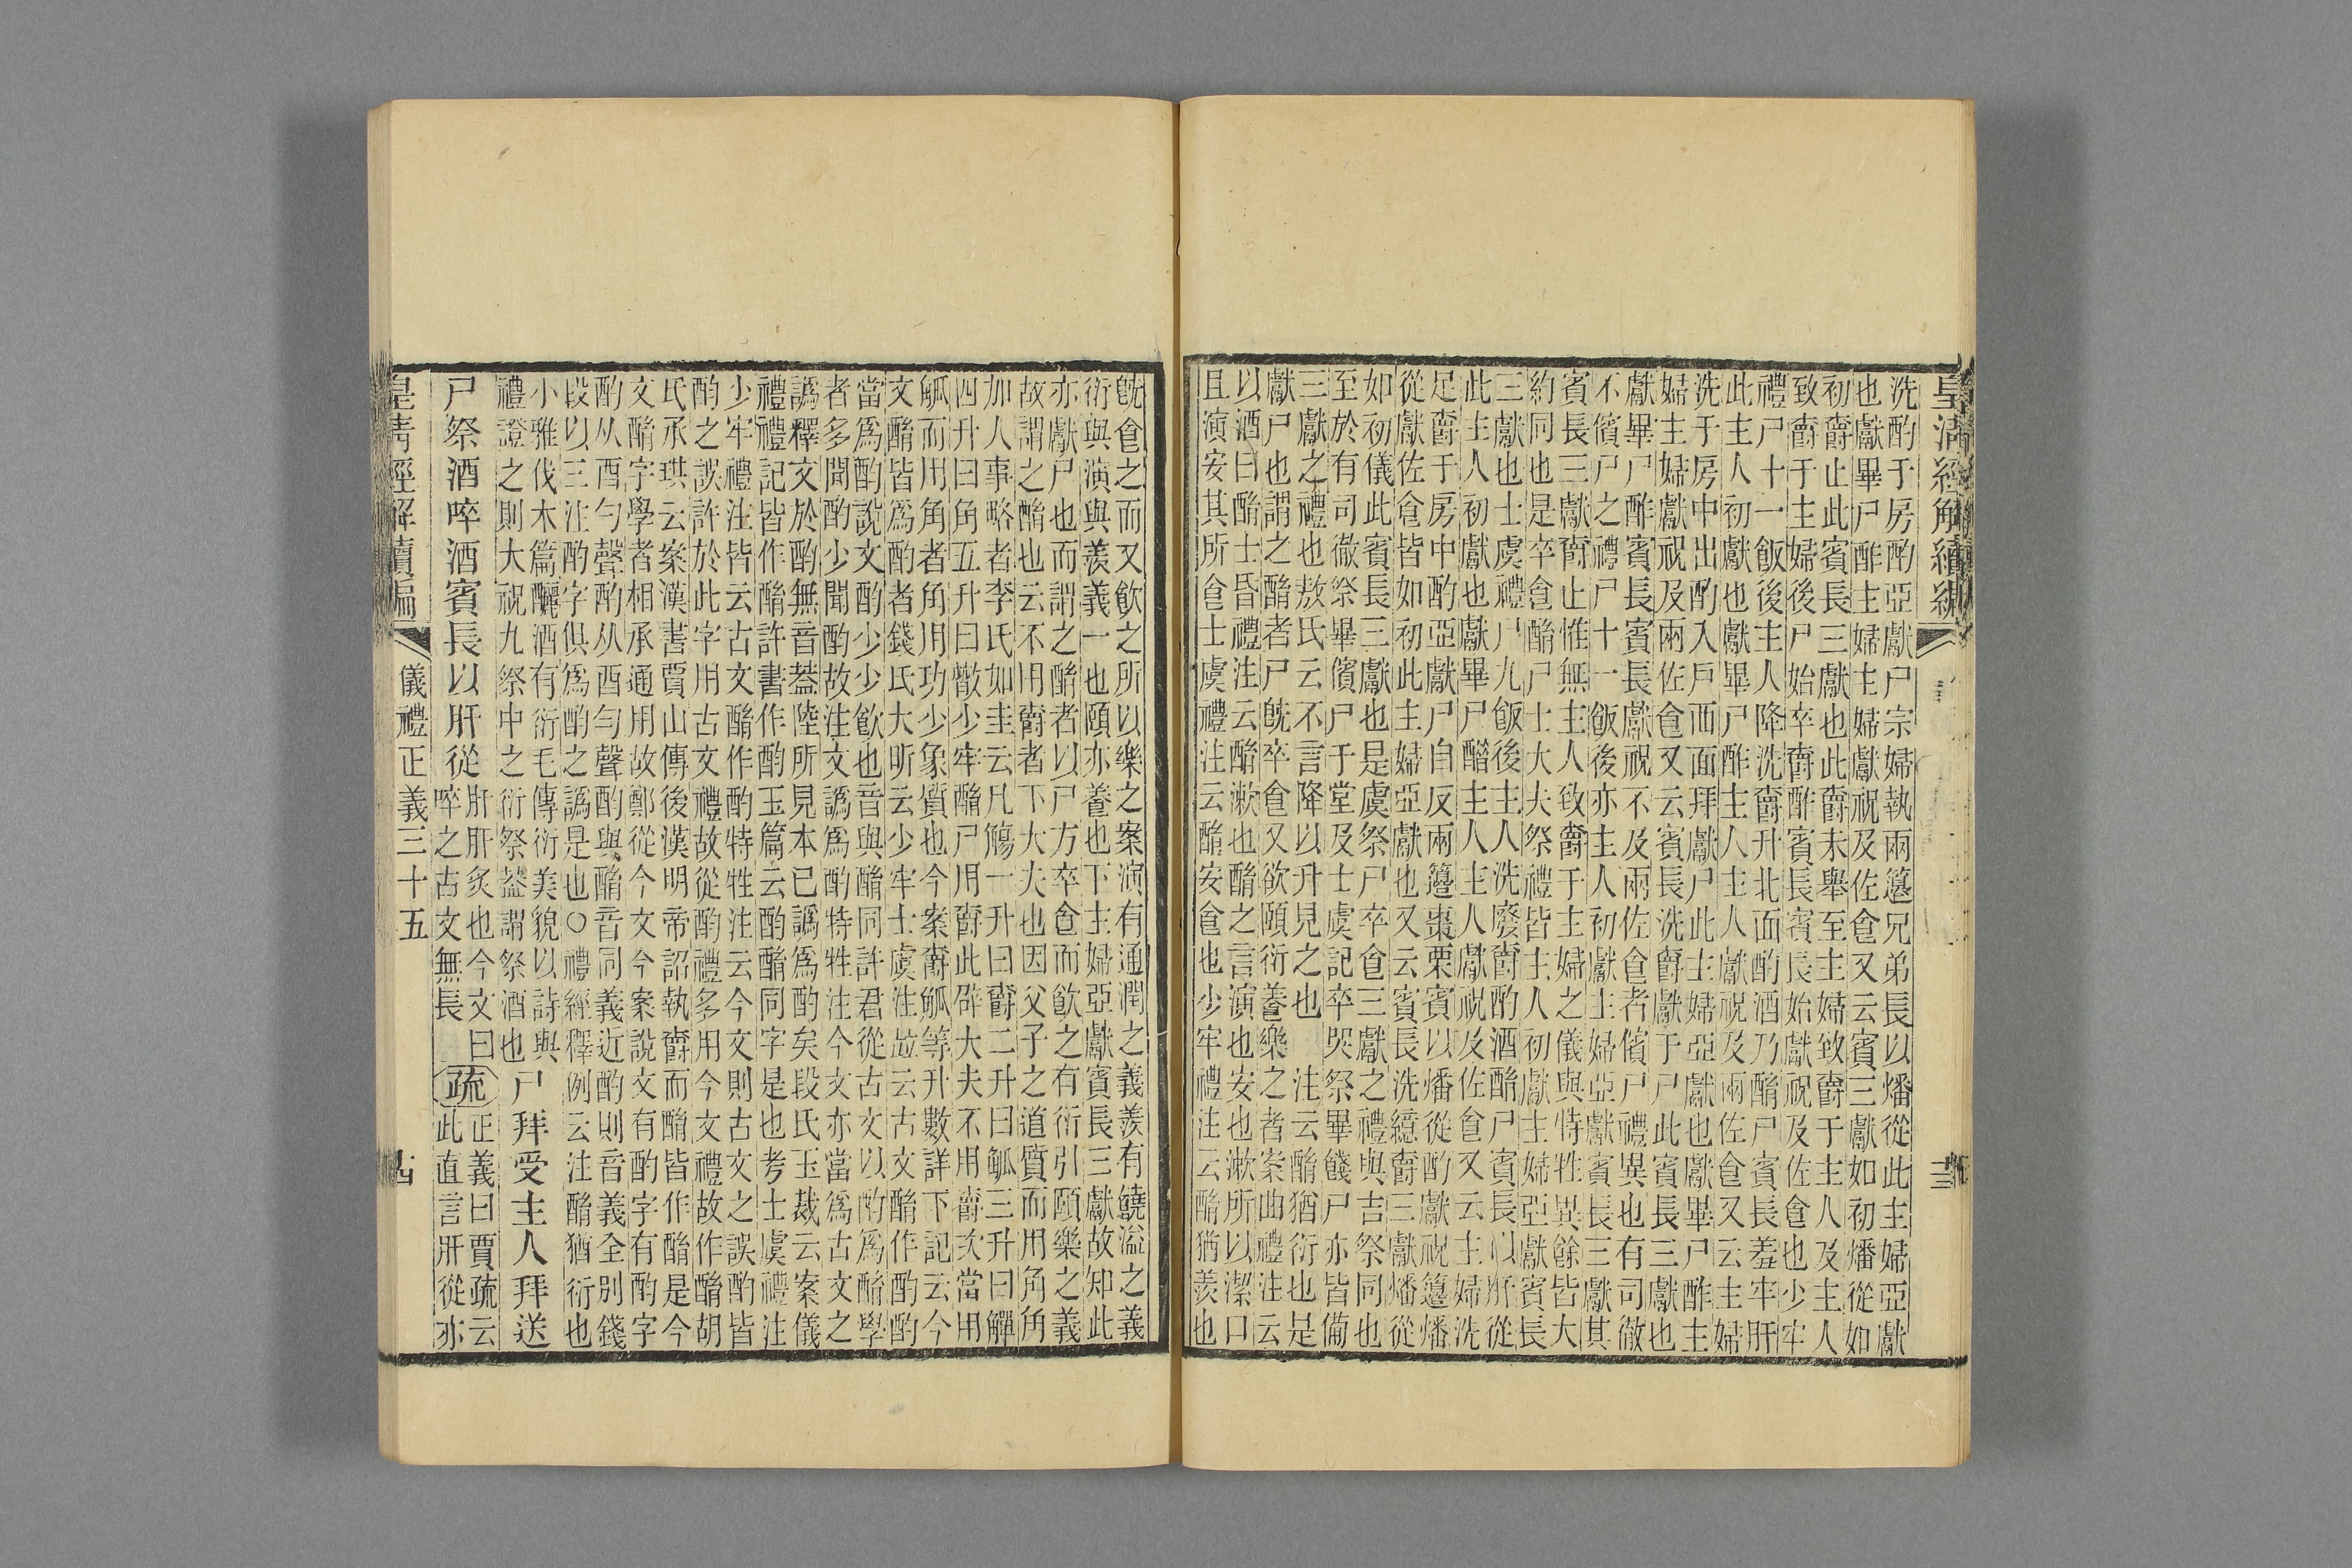 皇清經解續編
洗酌于房酌亞獻尸宗婦執兩籩兄弟長以燔從此主婦亞獻
也獻畢尸酢主婦主婦獻祝及佐食又云賓三獻如初燔從如
初爵止此賓長三獻也此爵未舉至主婦致爵于主人及主人
致爵于主婦後尸始卒爵酢賓長賓長始獻祝及佐食也少牢
禮尸十一飯後主人降洗爵升北面酌酒乃酳尸賓長羞牢肝
此主人初獻也獻畢尸酢主人主人獻祝及兩佐食又云主婦
洗于房中出酌入戶西面拜獻尸此主婦亞獻也獻畢尸酢主
婦主婦獻祝及兩佐食又云賓長洗爵獻于尸此賓長三獻也
獻畢尸酢賓長賓長獻祝不及兩佐食者儐尸禮異也有司徹
不儐尸之禮尸十一飯後亦主人初獻主婦亞獻賓長三獻其
賓長三獻爵止惟無主人致爵于主婦之儀與特牲異餘皆大
約同也是卒食酳尸士大夫祭禮皆主人初獻主婦亞獻賓長
三獻也士虞禮尸九飯後主人洗廢爵酌酒酳尸賓長以肝從
此主人初獻也獻畢尸醋主人主人獻祝及佐食又云主婦洗
足爵于房中酌亞獻尸自反兩籩棗栗賓以燔從酌獻祝籩燔
從獻佐食皆如初此主婦亞獻也又云賓長洗繶爵三獻燔從
如初儀此賓長三獻也是虞祭尸卒食三獻之禮與吉祭同也
至於有司徹祭畢儐尸于堂及士虞記卒哭祭畢餞尸亦皆備
三獻之禮也敖氏云不言降以升見之也　注云酳猶衍也是
獻尸也謂之酳者尸既卒食又欲頤衍養樂之者案曲禮注云
以酒曰酳士昏禮注云酳漱也酳之言演也安也漱所以潔口
且演安其所食士虞禮注云酳安食也少牢禮注云酳猶羨也
既食之而又飲之所以樂之案演有通潤之義羨有饒溢之義
衍與演與羨義一也頤亦養也下主婦亞獻賓長三獻故知此
亦獻尸也而謂之酳者以尸方卒食而飲之有衍引頤樂之義
故謂之酳也云不用爵者下大夫也因父子之道質而用角角
加人事略者李氏如圭云凡觴一升曰爵二升曰觚三升曰觶
四升曰角五升曰散少牢酳尸用爵此卲大夫不用爵次當用
觚而用角者角用功少象質也今案爵觚等升數詳下記云今
文酳皆爲酌者錢氏大昕云少牢士虞注竝云古文酳作酌酌
當爲䣧說文䣧少少飲也音與酳同許君從古文以䣧爲酳學
者多聞酌少聞䣧故注文譌爲酌特牲注今文亦當爲古文之
譌釋文於酌無音葢陸所見本已譌爲酌矣段氏玉裁云案儀
禮禮記皆作酳許書作䣧玉篇云䣧酳同字是也考士虞禮注
少牢禮注皆云古文酳作酌特牲注云今文則古文之誤酌皆
䣧之誤許於此字用古文禮故從䣧禮多用今文禮故作酳胡
氏承珙云案漢書賈山傳後漢明帝詔執爵而酳皆作酳是今
文酳字學者相承通用故鄭從今文今案說文有酌字有䣧字
酌从酉勺聲䣧从酉勻聲䣧與酳音同義近酌則音義全別錢
段以三注酌字俱爲䣧之譌是也○禮經釋例云注酳猶衍也
小雅伐木篇釃酒有衍毛傳衍美貌以詩與
禮證之則大祝九祭中之衍祭葢謂祭酒也
尸拜受主人拜送
尸祭酒啐酒賓長以肝從
肝肝炙也今文曰
啐之古文無長
疏
正義曰賈疏云
此直言肝從亦
皇清經解續編
儀禮正義三十五